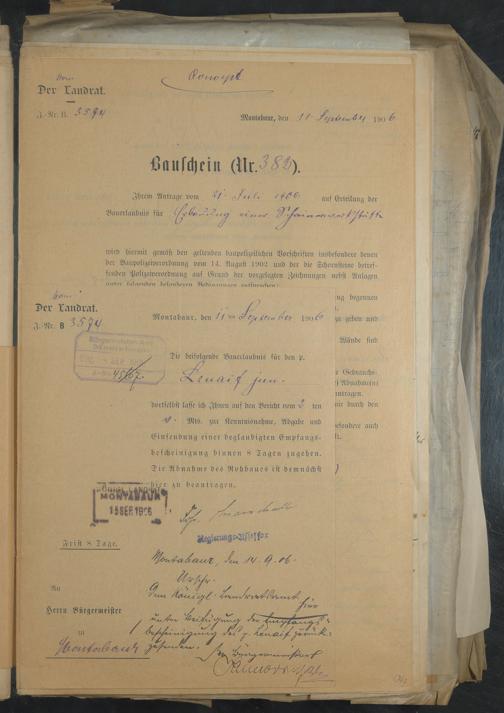 Concept
Der Landrat.
J.-Nr. B. 3594
Montabaur, den 11 September 1906
Bauschein (Nr. 382).
Ihrem Antrage vom 21 Juli 1906 auf Erteilung der
Bauerlaubnis für Erbauung einer Schreinerwerkstätte
wird hiermit gemäß den geltenden baupolizeilichen Vorschriften insbesondere denen
der Baupolizeiverordnung vom 14. August 1902 und der die Schornsteine betref-
fenden Polizeiverordnung auf Grund der vorgelegten Zeichnungen nebst Anlagen
unter folgenden besonderen Bedingungen entsprochen:
ng begonnen
zu geben und
Wände sind
Gebrauchs-
Abnahme
antragen.
durch den
besondere auch
Der Landrat.
J.-Nr. B 3594
Montabaur, den 11 September 1906
Die beifolgende Bauerlaubnis für den p.
jun.
dortselbst lasse ich Ihnen auf den Bericht vom 2 ten
Mts. zur Kenntnisnahme, Abgabe und
Einsendung einer beglaubigten Empfangs-
bescheinigung binnen 8 Tagen zugehen.
Die Abnahme des Rohbaues ist demnächst
hier zu beantragen.
MONTABAUR
15 SEP. 1906
Regierungs-Assessor
Frist 8 Tage.
Montabaur, den 14.9.06.
Urschr.
dem Königl. Landratsamt
hier
unter Beifügung der Empfangs-
bescheinigung des p.
An
Herrn Bürgermeister
zu
Montabaur
Der Bürgermeister